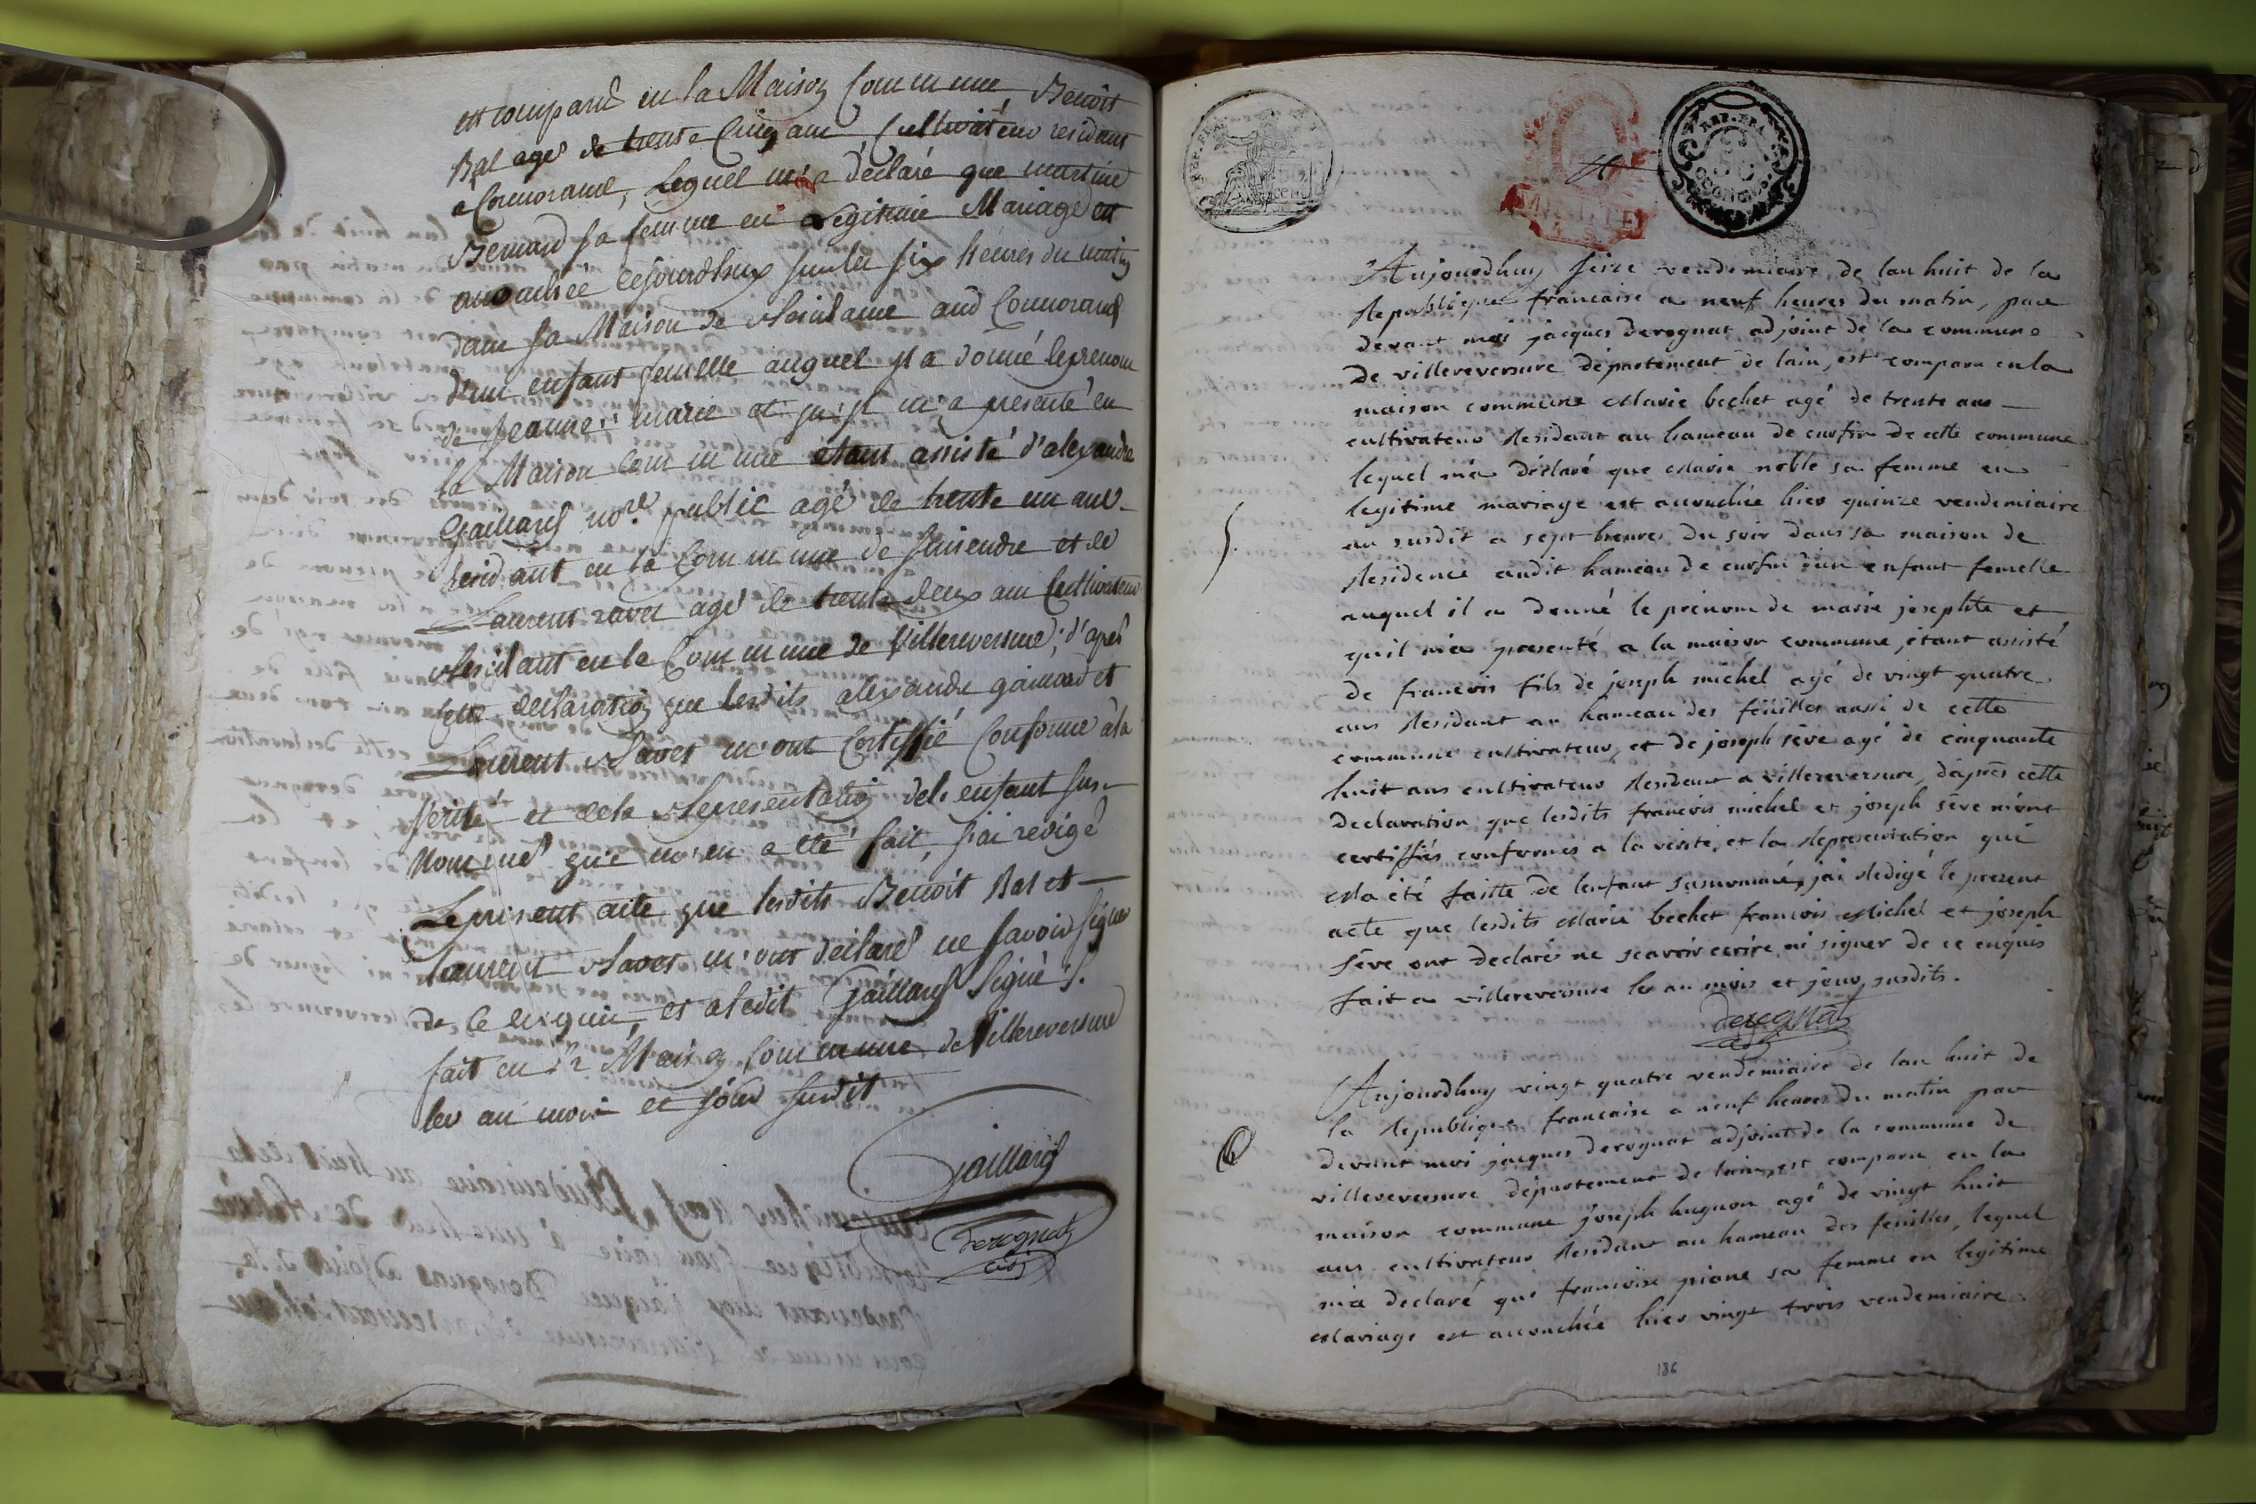 est comparu en la Maison Commune, Benoit
Bal agé de trente Cinq ans Cultivateur residant
a Cormorand, Lequel m'a déclaré que martine
Bernard sa femme en Legitime Mariage est
accouchée cejourdhuy sur les six heures du matin
dans sa Maison de Residance aud Cormorand
d'un enfant femelle auquel il a donné le prenom
de Jeanne marie et qu'il m'a presenté en
la Maison Commune étant assisté d'alexandre
Gaillard no.re public agé de trente un ans
residant en la Commune de Simandre et de
Laurent ravet agé de trente deux ans Cultivateur
Residant en la Commune de Villereversure; d'après
cette declaration que lesdits alexandre gaillard et
Laurent Ravet m'ont Certiffié Conforme à la
Vérité et de la Representation de l'enfant sus-
Nommé qui m'en a été fait, j'ai redigé
Le present acte que lesdits Benoit Bal et
Laurent Ravet m'ont déclaré ne savoir signer
de ce enquis, et Ledit Gaillard signé ;.
fait en la Maison Commune de Villereversure
les an mois et jour susdit
Gaillard
Derognat
adj
REP. FRA.
Aujourdhuy seize vendemiaire de lan huit de la
Republique francaise a neuf heures du matin, par
devant moi jacques derognat adjoint de la commune
de villereversure département de lain, est comparu en la
maison commune Marie bechet agé de trente ans
cultivateur Residant au hameau de cursin de cette commune
lequel m'a déclaré que Marie noble sa femme en
legitime mariage est accouchée hier quinze vendemiaire
au susdit a sept heures du soir dans sa maison de
Residence audit hameau de cursin d'un enfant femelle
auquel il a donné le prénom de marie josephte et
quil m'a presenté a la maison commune, étant assisté
de francois fils de joseph michel agé de vingt quatre
ans Residant au hameau des feuilles aussi de cette
commune cultivateur, et de joseph sève agé de cinquante
huit ans cultivateur Residant a villereversure, d'après cette
declaration que lesdits francois michel et joseph sève m'ont
certiffiés conformes a la vérité, et la Representation qui
Ma été faitte de lenfant susnommé, jai Redigé le present
acte que lesdits Marie bechet francois Michel et joseph
sève ont declaré ne scavoir écrire ni signer de ce enquis
fait a villereversure les an mois et jour susdits.
derognat
adj
6
Aujourdhuy vingt quatre vendemiaire de lan huit de
la Republique francaise a neuf heures du matin par
devant moi jacques derognat adjoint de la commune de
villereversure département de lain, est comparu en la
maison commune joseph hugnon agé de vingt huit
ans cultivateur Residant au hameau des feuilles, lequel
m'a declaré que francoise piane sa femme en legitime
Mariage est accouchée hier vingt trois vendemiaire
186